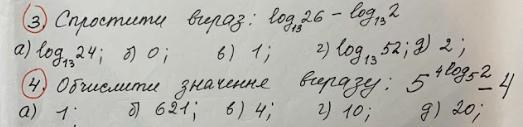 3. Спростити вираз: log₁₃26 - log₁₃2
а) log₁₃24; б) 0; в) 1; г) log₁₃52; д) 2;
4. Обчислити значення виразу: 5^(4log₅2) - 4
а) 1; б) 621; в) 4; г) 10; д) 20;